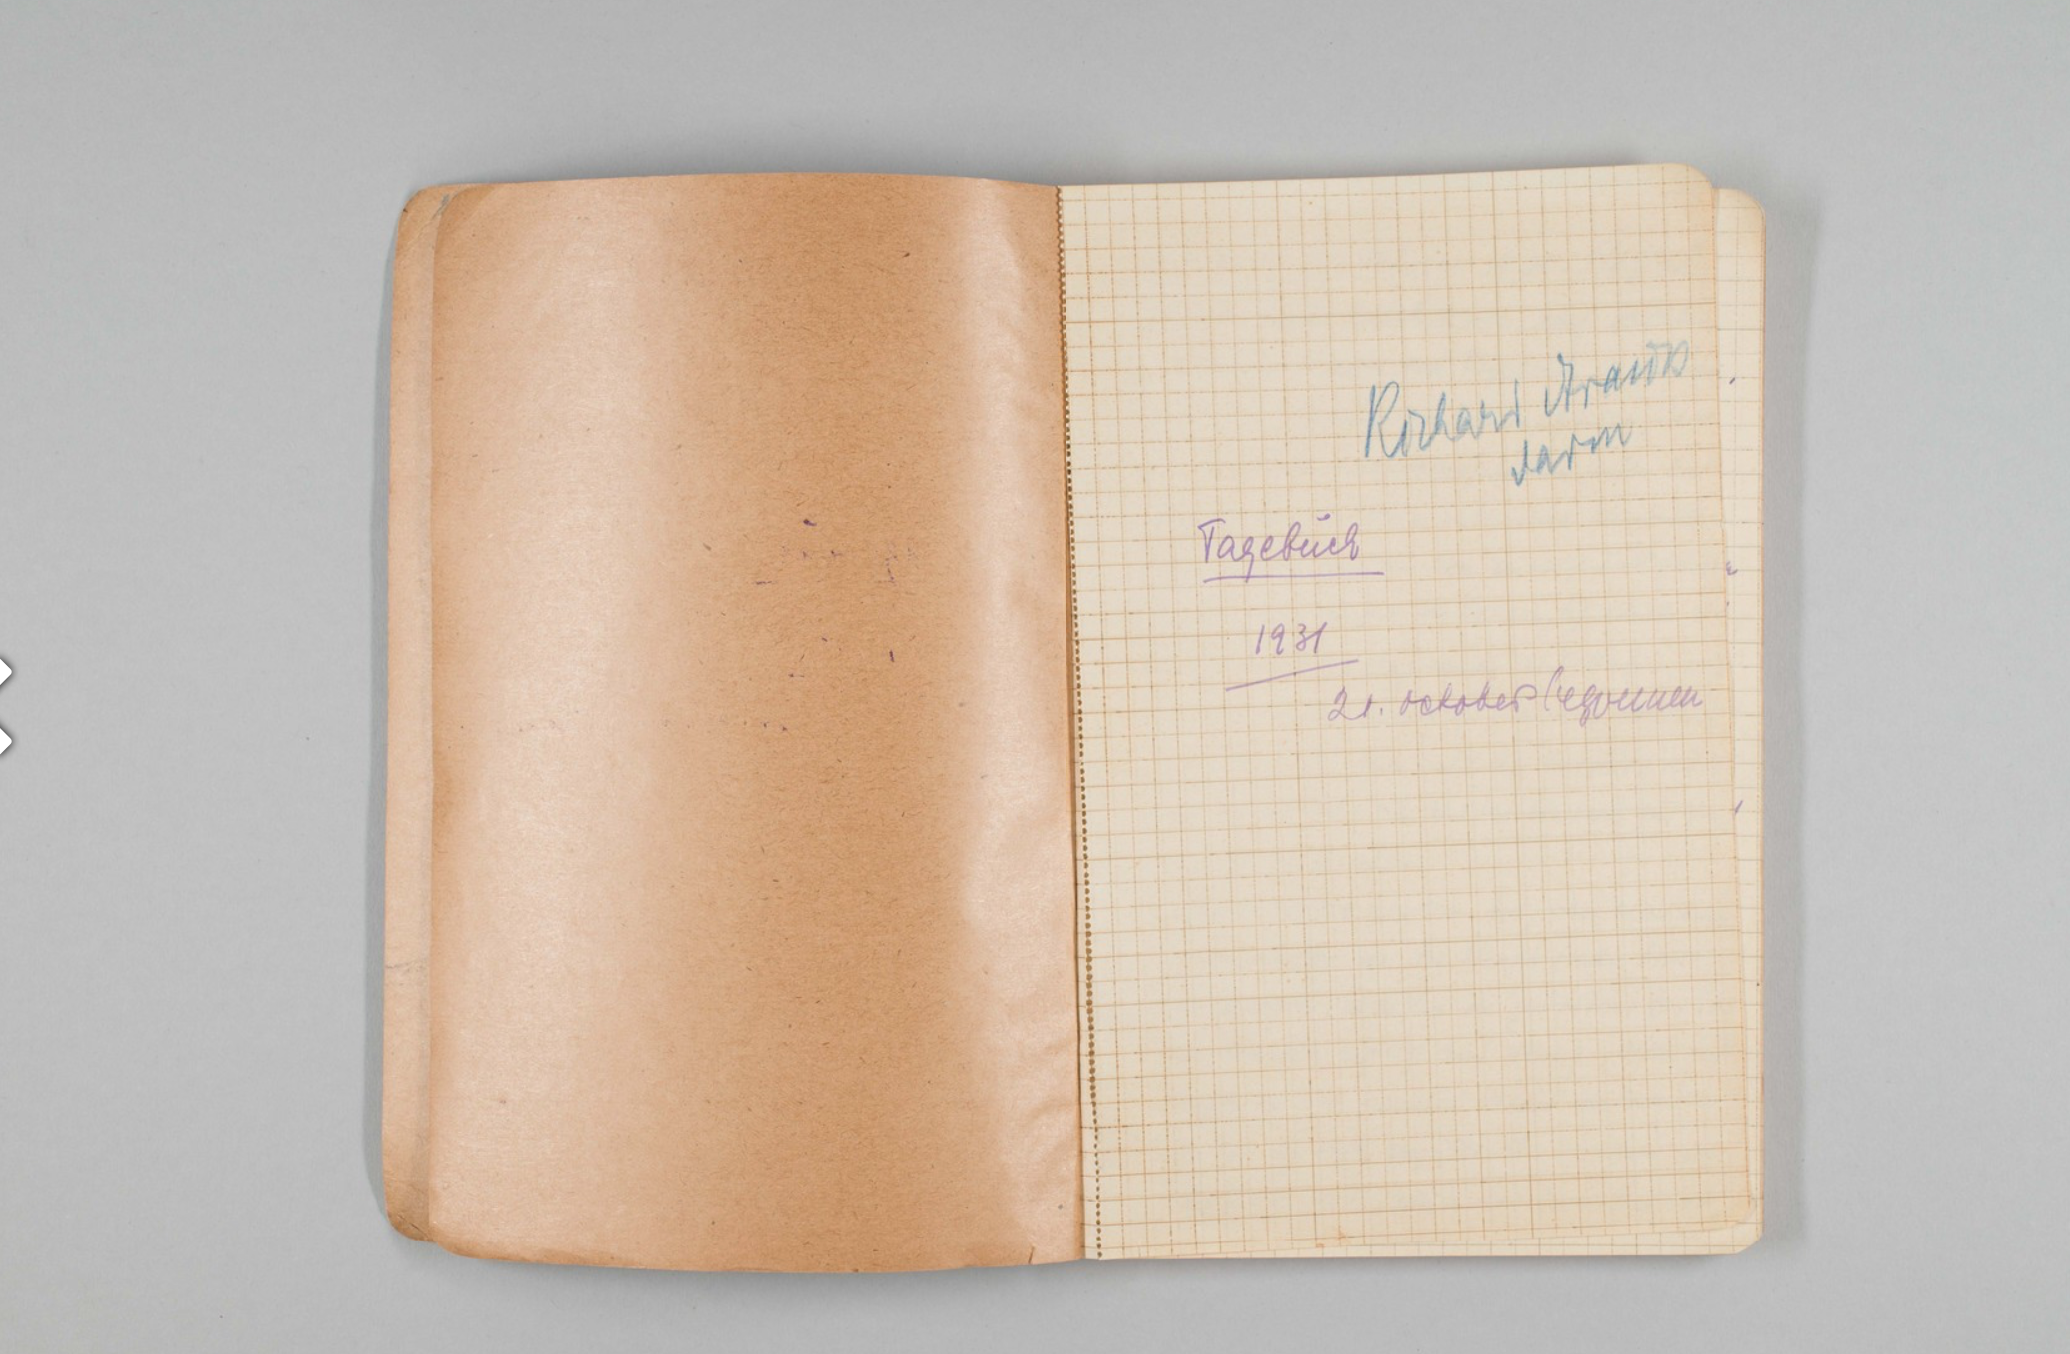 Richard Strauss
darin
Tagebuch
1931
21. october begonnen